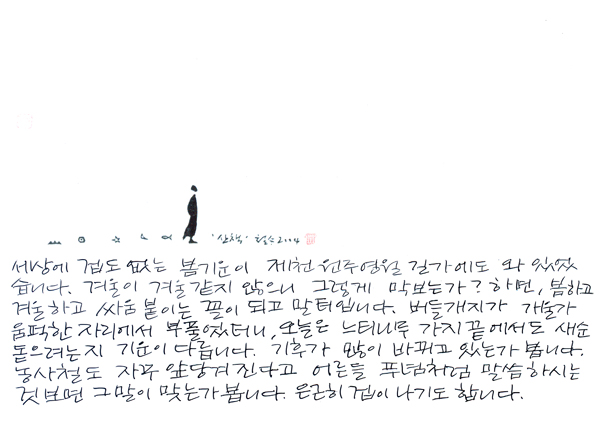 '산책' 철수 2004
세상에 겁도 없는 봄기운이 제천 원주 영월 길가에도 와 있었
습니다. 겨울이 겨울같지 않으니 그렇게 막보는가? 하면, 봄하고
겨울하고 싸움 붙이는 꼴이 되고 말터입니다. 버들개지가 개울가
움푹한 자리에서 부풀었더니, 오늘은 느티나무 가지끝에서도 새순
돋으려는지 기운이 다릅니다. 기후가 많이 바뀌고 있는가 봅니다.
농사철도 자꾸 앞당겨 진다고 어른들 푸념처럼 말씀하시는
것 보면 그말이 맞는가 봅니다. 은근히 겁이 나기도 합니다.